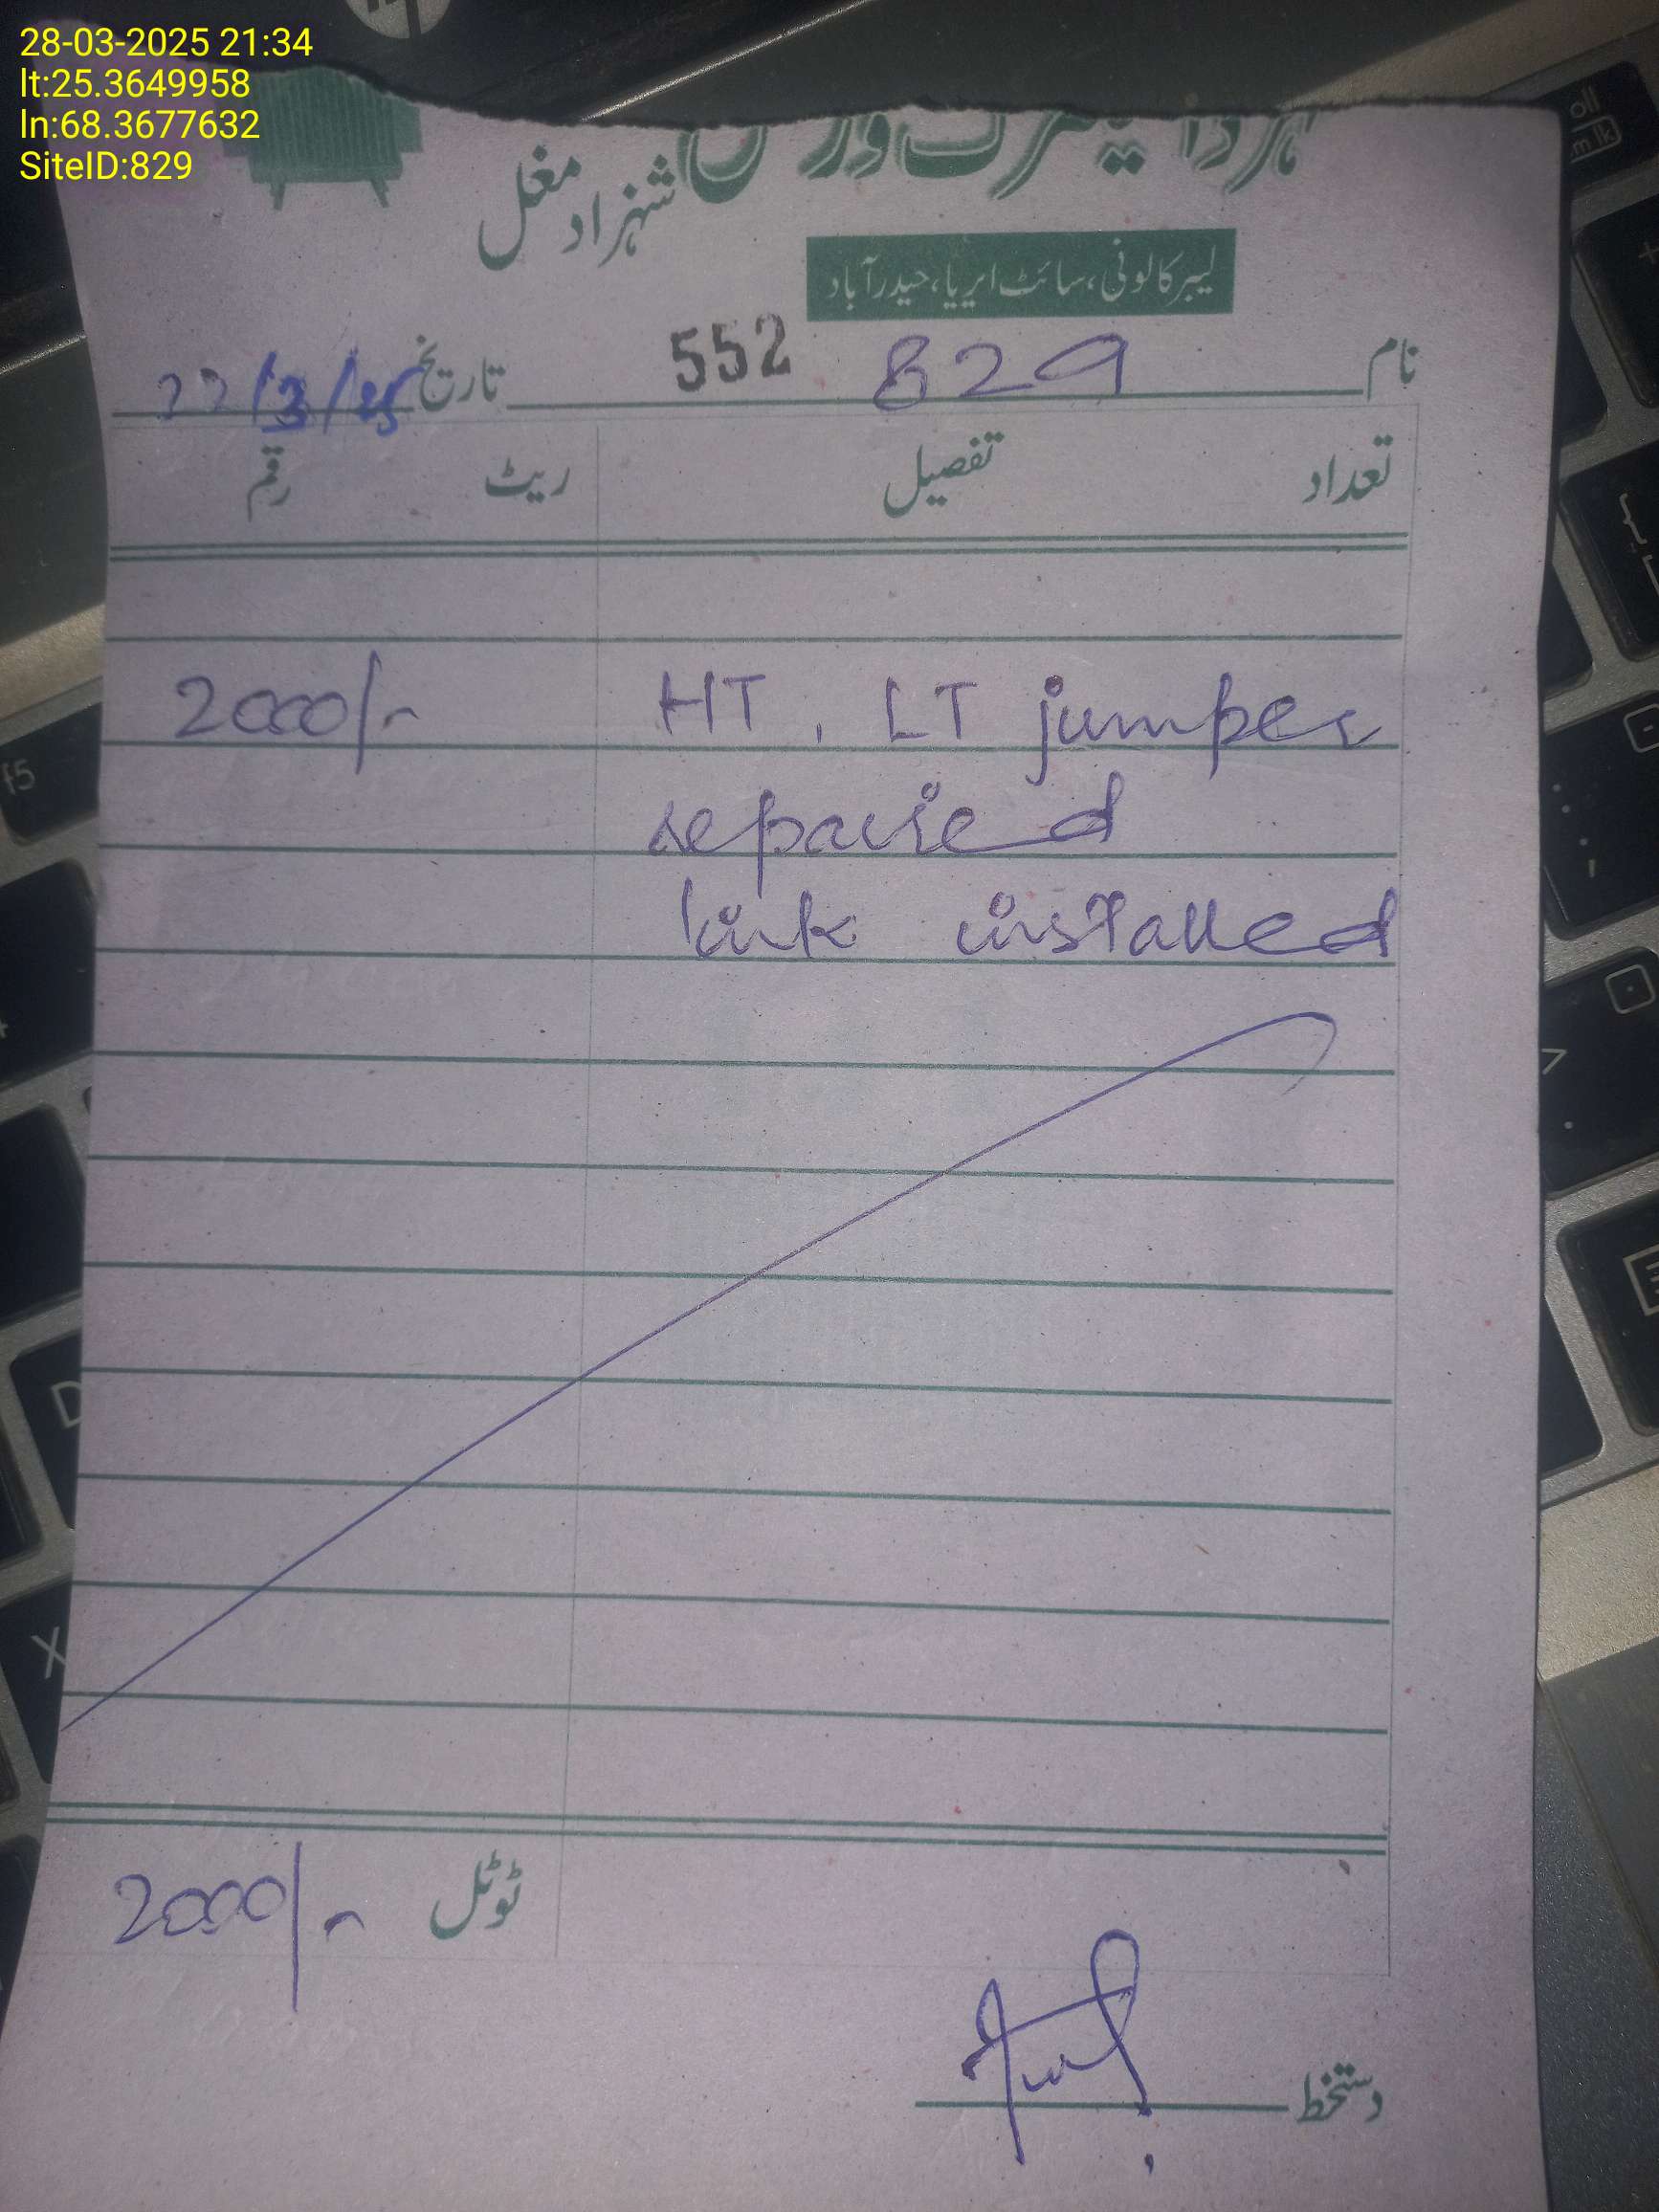 28-03-2025 21:34
lt:25.3649958
ln:68.3677632
SiteID:829
شہزاد مغل
لیبر کالونی، سائٹ ایریا، حیدرآباد
نام 829 552 تاریخ 22/3/25
تعداد تفصیل ریٹ رقم
HT, LT jumper 2000/-
repaired
link installed
ٹوٹل 2000/-
دستخط